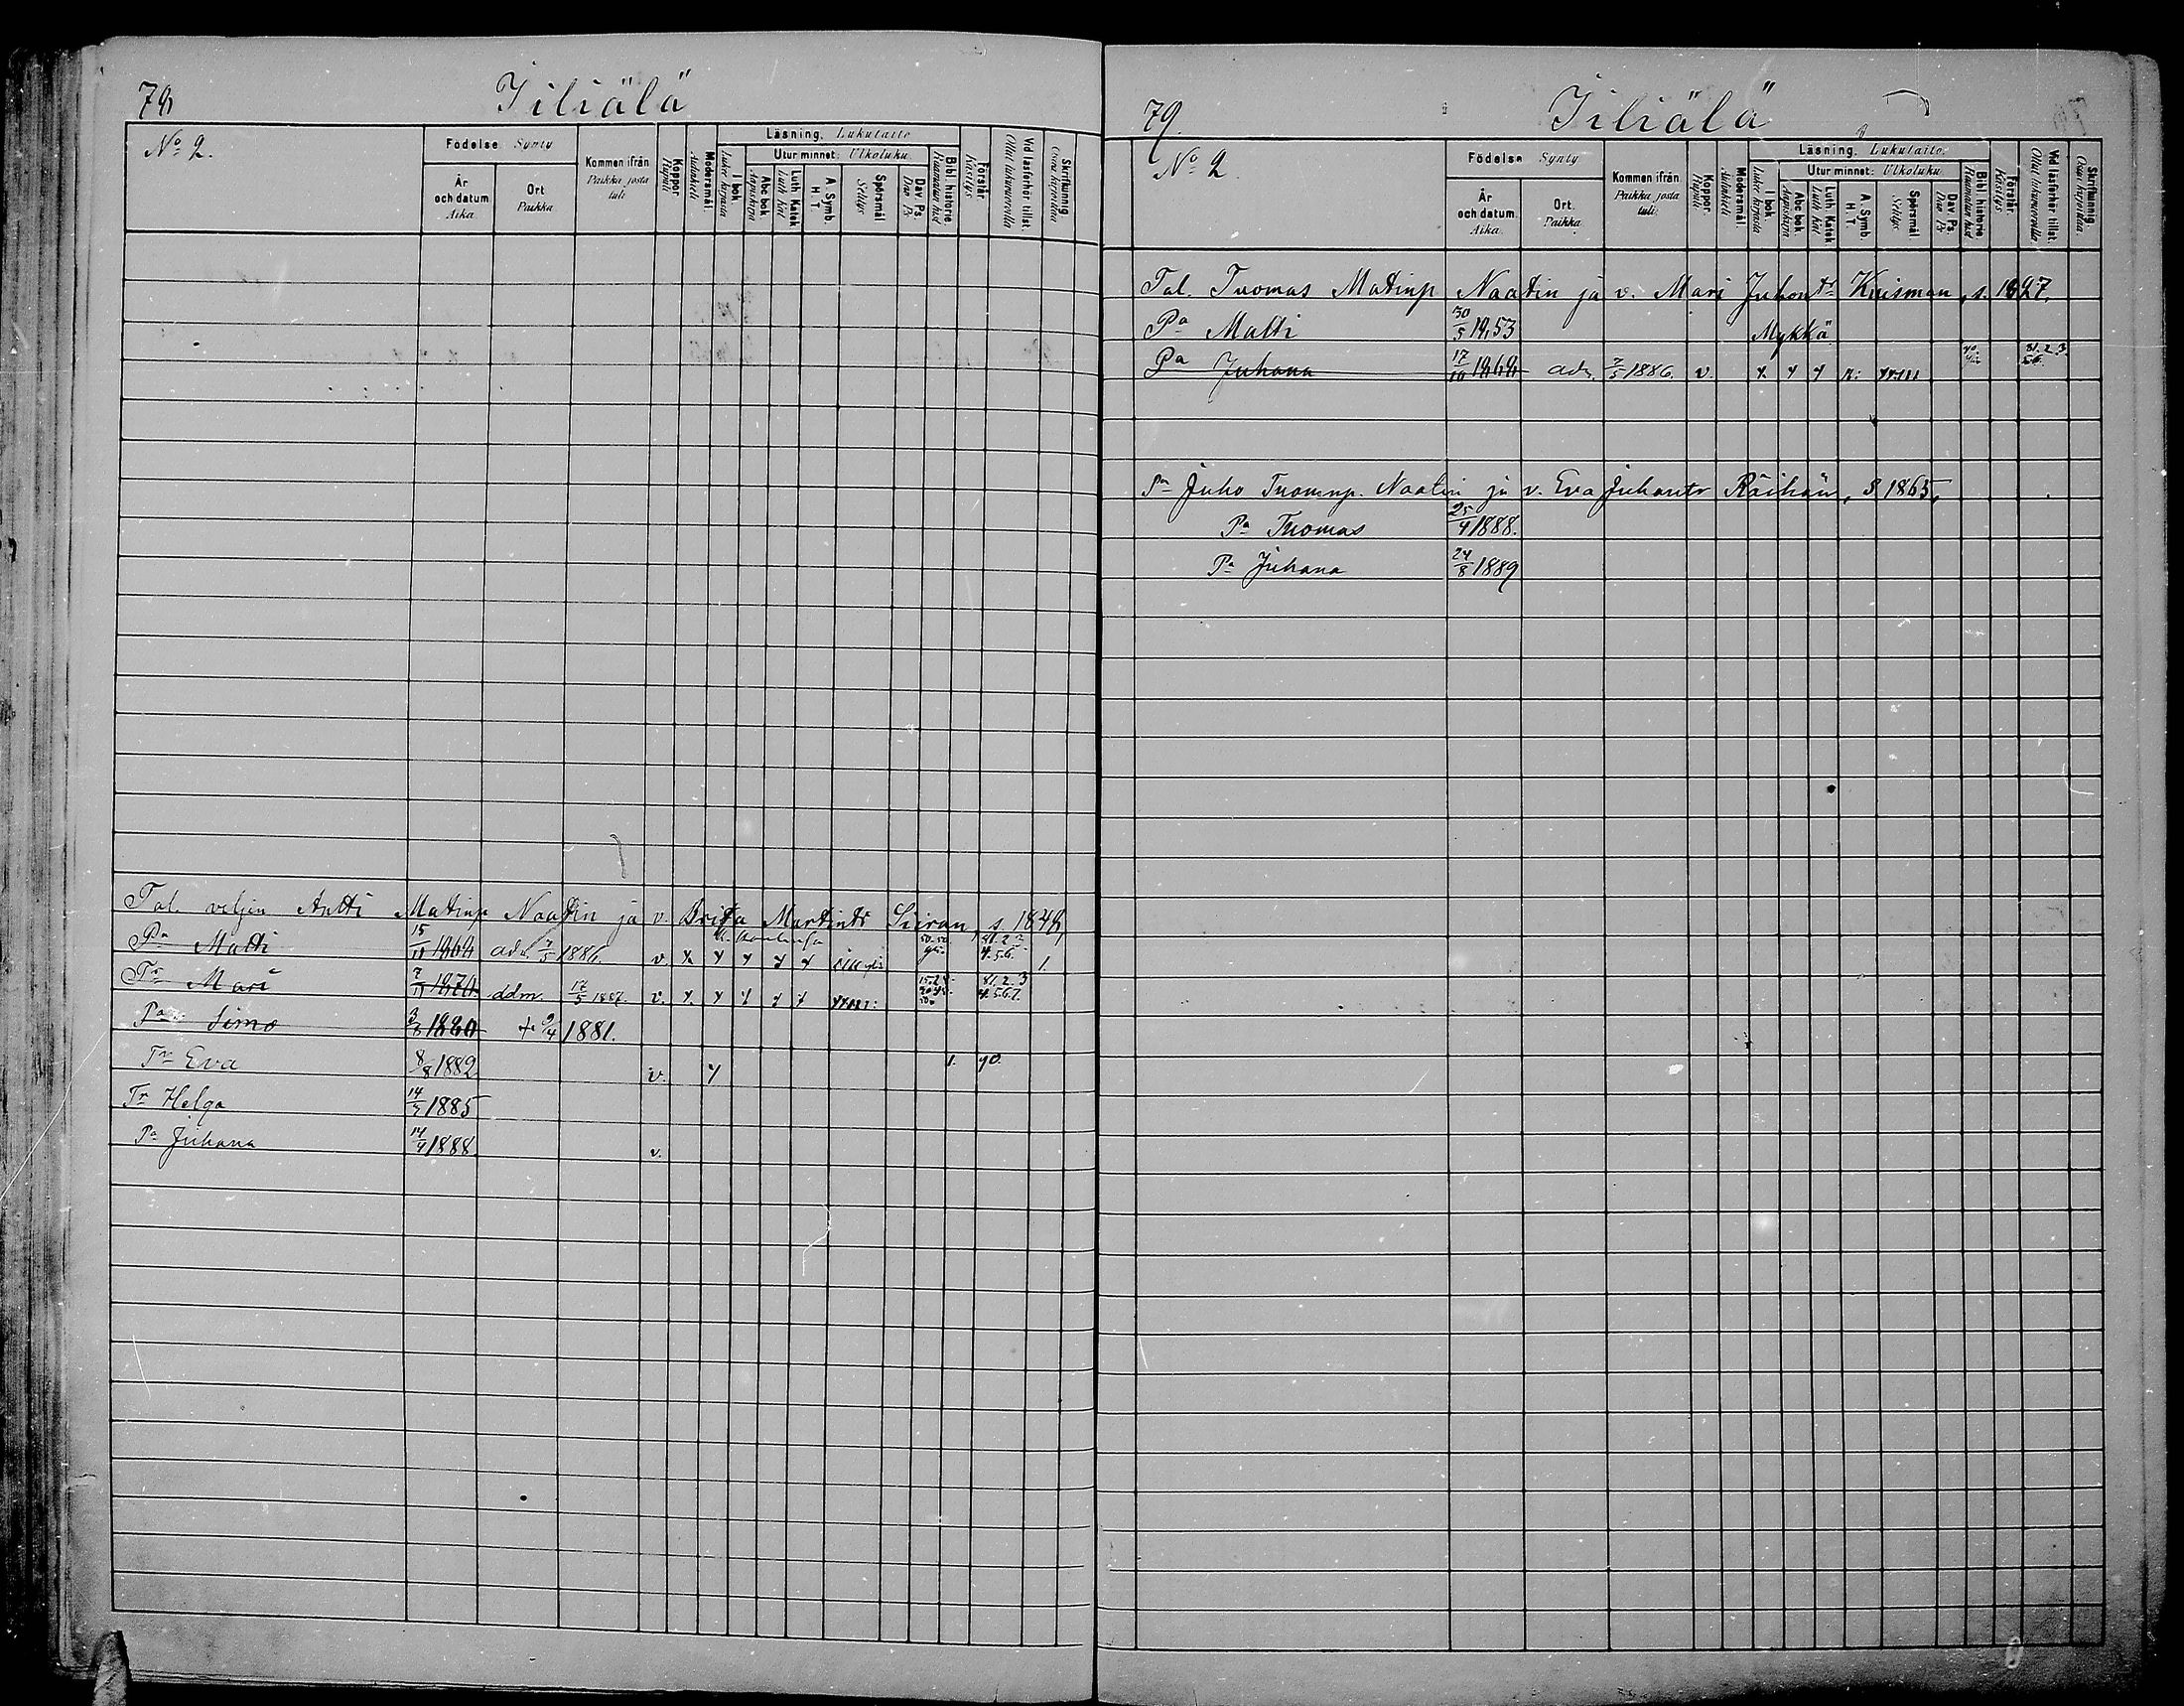 78
Iiliälä
No 2.
Födelse Synty
År och datum Aika.
Ort Paikka
Kommen ifrån Paikka josta tuli
Koppor. Rupuli
Modersmål. Äidinkieli
Läsning. Lukutaito
I bok Lukee kirjasta
Utur minnet: Ulkoluku.
Abc bok Aapiskirja
Luth Katek Luth Kat
A. Symb. H. T.
Spörsmål Selitys
Dav. Ps Dav Ps
Bibl. historie Raamatun hist
Förstår. Käsitys
Vid läsförhör tillst. Ollut lukuvuorolla
Skrifkunnig. Osaa kirjoittaa
Tal. veljen Antti Matinp Naatin ja v. Brita Martintr Siiran, s. 1848,
Pa Matti 15/11 1868 adm. 7/5 1886. v. 81. 2. 3 4. 5.6. 1.
Tr Mari 7/11 1870 adm. 17/5 1887. v. 81. 2. 3 4. 5.6.7.
Pa Simo 3/8 1880 + 9/4 1881.
Tr Eva 8/8 1882 v. 1. 90.
Tr Helga 14/5 1885
Pa Juhana 14/4 1888 v.
79.
Iiliälä
No 2
Födelse Synty
År och datum. Aika.
Ort. Paikka
Kommen ifrån. Paikka josta tuli.
Koppor. Rupuli
Modersmål. Äidinkieli
Läsning. Lukutaito.
I bok. Lukee kirjasta
Utur minnet: Ulkoluku.
Abc bok. Aapiskirja
Luth Katek Luth Kat
A. Symb. H. T.
Spörsmål Selitys.
Dav. Ps Dav Ps
Bibl. historie Raamatun hist
Förstår. Käsitys
Vid läsförhör tillst. Ollut lukuvuorolla
Skrifkunnig. Osaa kirjoittaa.
Tal. Tuomas Matinp Naatin ja v. Mari Juhontr Kuisman, s. 1827.
Pa Matti 30/5 1853 Mykkä
Pa Juhana 17/10 1868 adm. 7/5 1886. v. 81. 2. 3. 5.6.
Pa Juho Tuomnp. Naatin ja v. Eva Juhontr Räihän, s 1865,
Pa Tuomas 25/4 1888.
Pa Juhana 24/8 1889